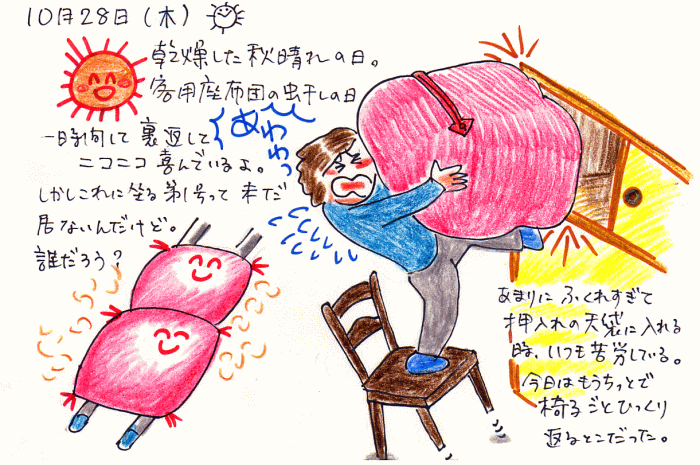 10月28日(木)
乾燥した秋晴れの日。
客用座布団の虫干しの日
一時間して裏返して
ニコニコ喜んでいるよ。
しかしこれに坐る第1号って まだ
居ないんだけど。
誰だろう?
あわわっ
あまりにふくれすぎて
押入れの天袋に入れる
時、いつも苦労している。
今日はもうちっとで
椅子ごとひっくり
返るとこだった。